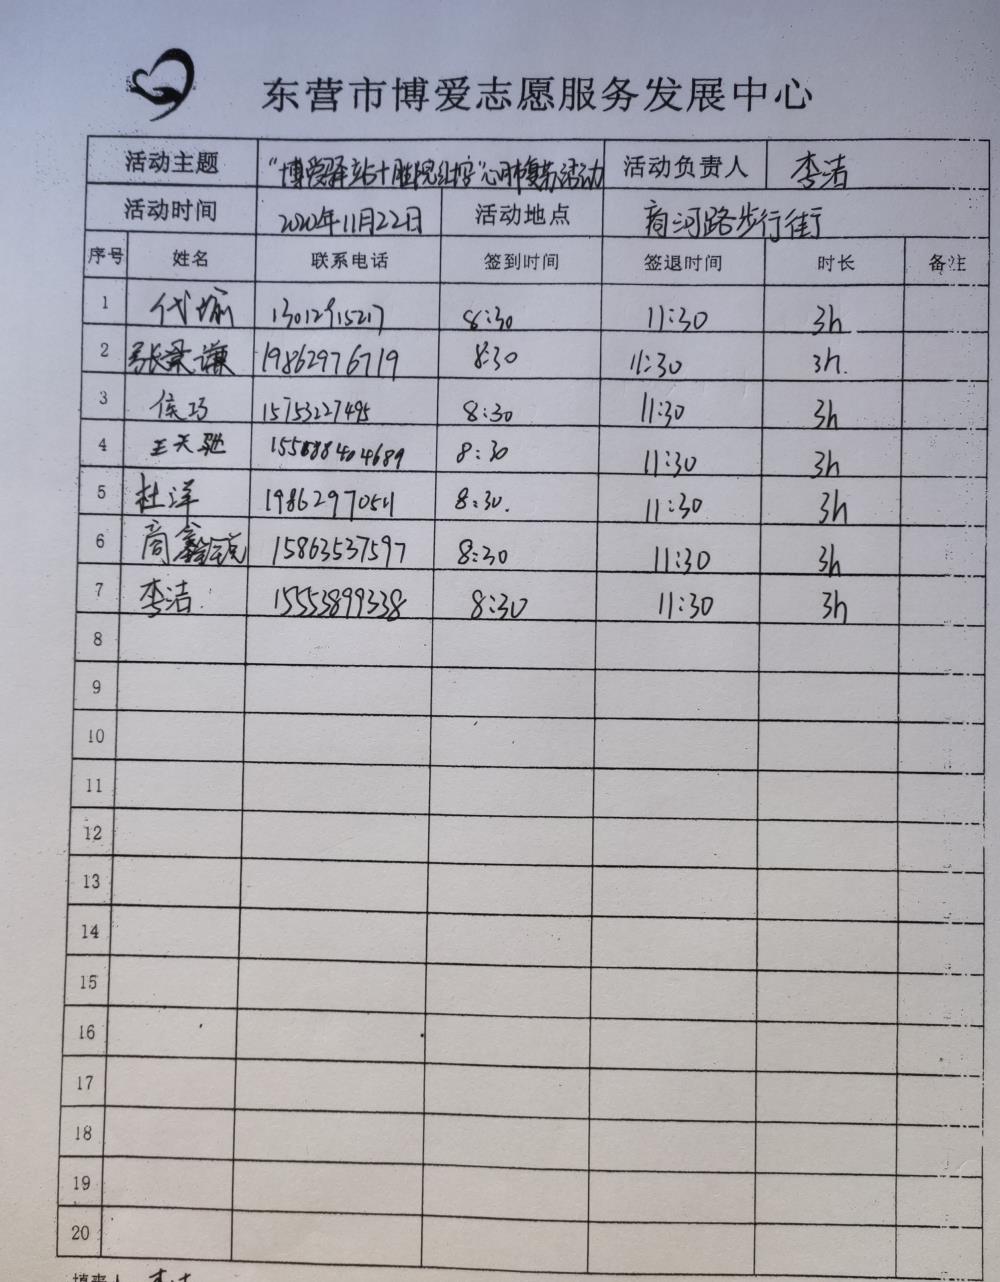 东营市博爱志愿服务发展中心
活动主题 "博爱驿站十胜院红字"心肺复苏活动 活动负责人 李洁
活动时间 2020年11月22日 活动地点 商河路步行街
序号 姓名 联系电话 签到时间 签退时间 时长 备注
1 代瑜 8:30 11:30 3h
2 张景谦 19862976719 8:30 11:30 3h.
3 侯巧 15753227495 8:30 11:30 3h
4 王天驰 8:30 11:30 3h
5 杜洋 19862970511 8:30. 11:30 3h
6 商鑫 15863537597 8:30 11:30 3h
7 李洁 15553899338 8:30 11:30 3h
8
9
10
11
12
13
14
15
16
17
18
19
20
填表人 李洁